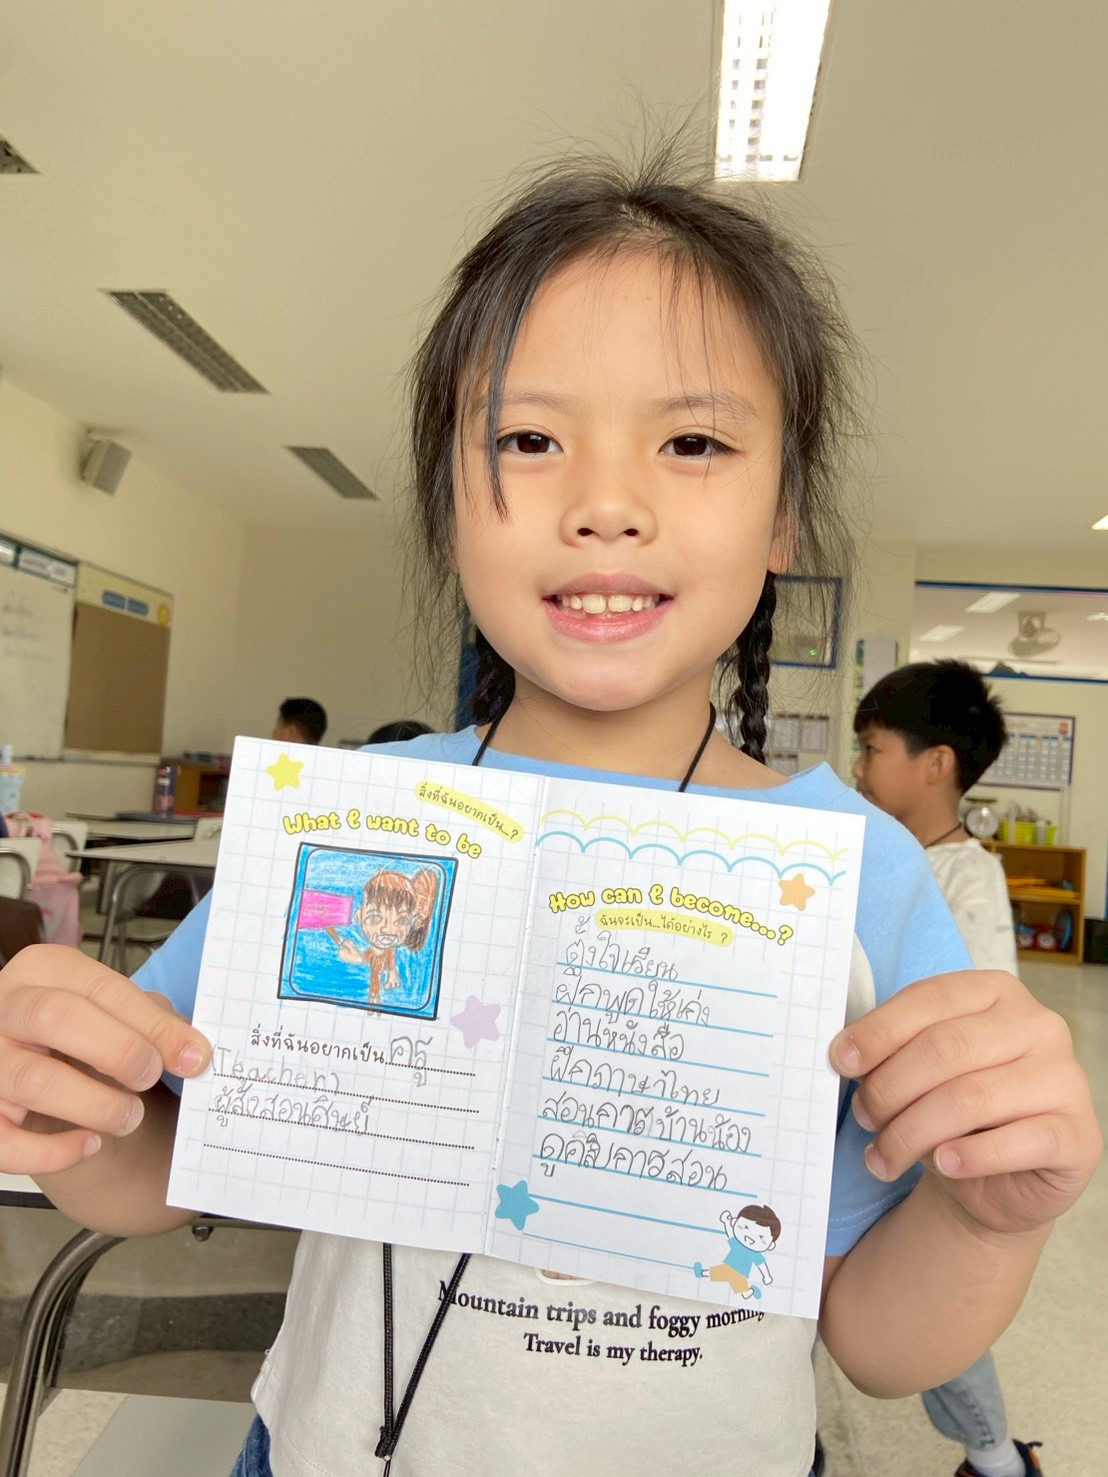 สิ่งที่ฉันอยากเป็น...?
What I want to be
สิ่งที่ฉันอยากเป็น ครู
(Teacher)
ผู้สั่งสอนศิษย์
How can I become...?
ฉันจะเป็น...ได้อย่างไร ?
ตั้งใจเรียน
ฝึกพูดให้เก่ง
อ่านหนังสือ
ฝึกภาษาไทย
สอนการบ้านน้อง
ดูคลิบการสอน
Mountain trips and foggy morning
Travel is my therapy.